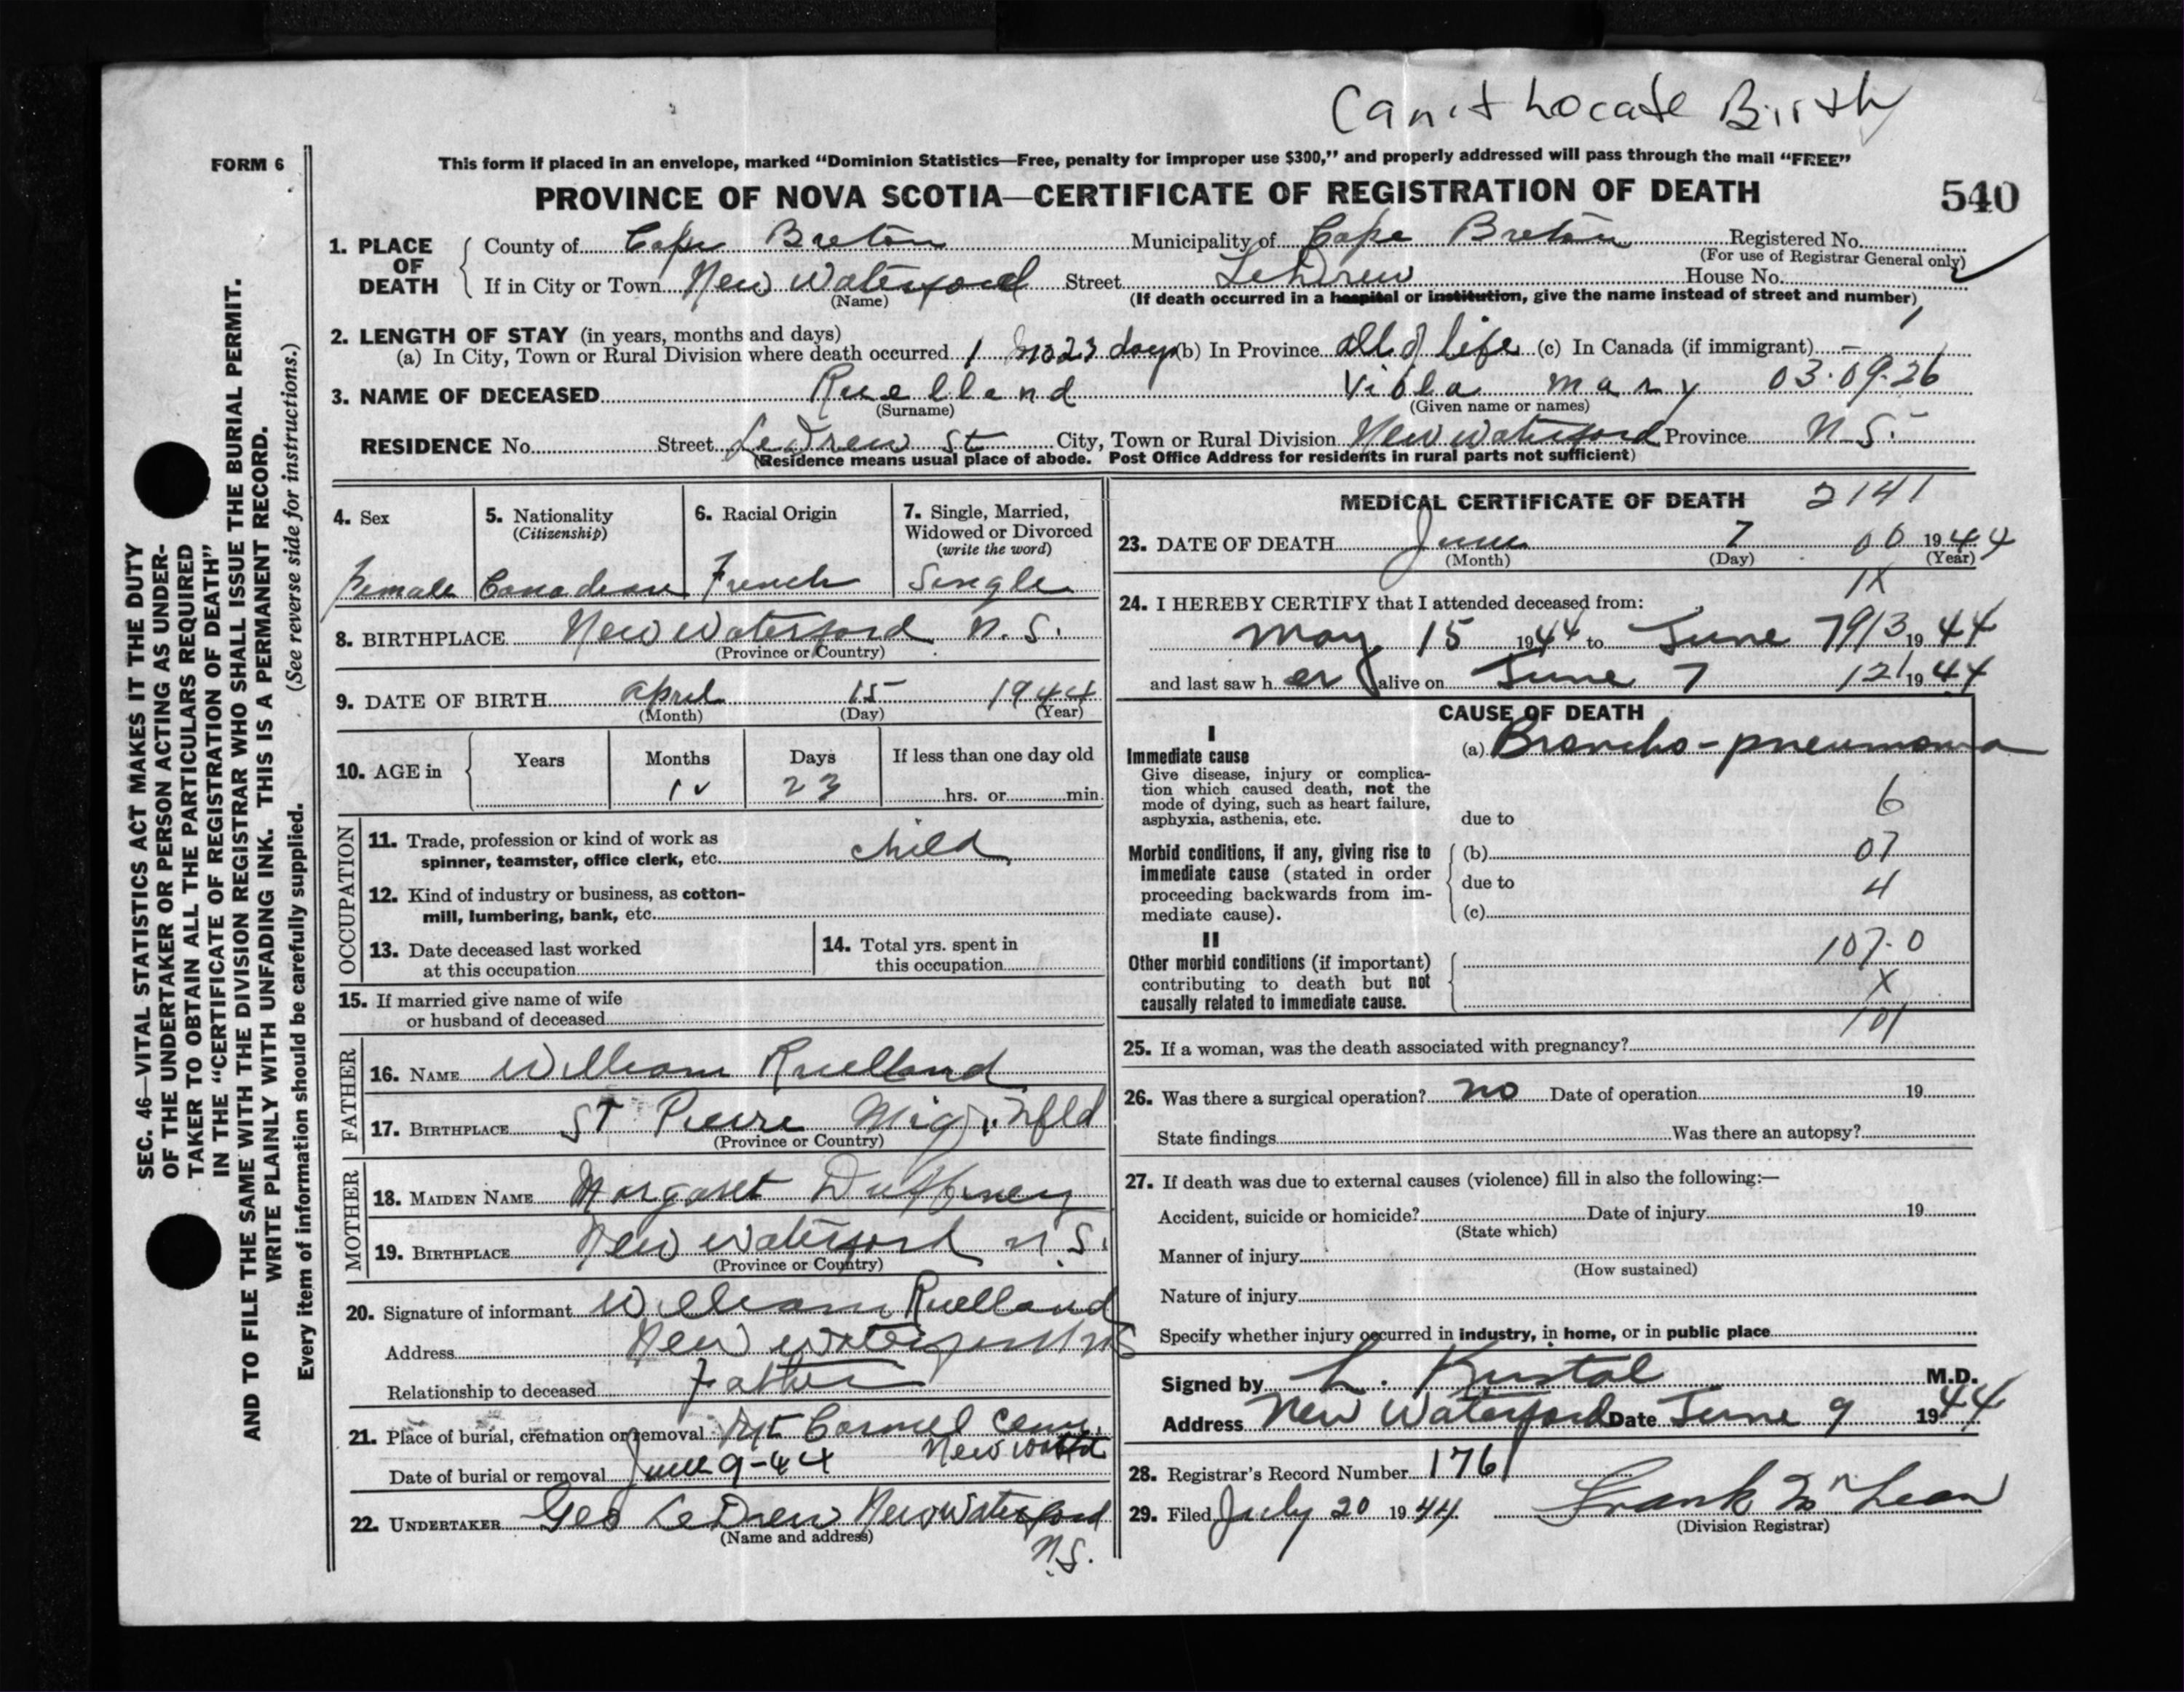 Can't Locate Birth
FORM 6
This form if placed in an envelope, marked “Dominion Statistics—Free, penalty for improper use $300,” and properly addressed will pass through the mail “FREE”
PROVINCE OF NOVA SCOTIA—CERTIFICATE OF REGISTRATION OF DEATH
540
1. PLACE OF DEATH
County of Cape Breton Municipality of Cape Breton Registered No.
(For use of Registrar General only)
If in City or Town New Waterford Street LeDrew House No.
(Name) (If death occurred in a hospital or institution, give the name instead of street and number)
2. LENGTH OF STAY (in years, months and days)
(a) In City, Town or Rural Division where death occurred 1 mo 23 days (b) In Province all of life (c) In Canada (if immigrant) —
3. NAME OF DECEASED Ruelland Viola Mary 03·09·26
(Surname) (Given name or names)
RESIDENCE No. Street LeDrew St City, Town or Rural Division New Waterford Province N.S.
(Residence means usual place of abode. Post Office Address for residents in rural parts not sufficient)
4. Sex
Female
5. Nationality
(Citizenship)
Canadian
6. Racial Origin
French
7. Single, Married,
Widowed or Divorced
(write the word)
Single
8. BIRTHPLACE New Waterford N.S.
(Province or Country)
9. DATE OF BIRTH April 15 1944
(Month) (Day) (Year)
10. AGE in Years Months Days If less than one day old
1 23 hrs. or min.
OCCUPATION
11. Trade, profession or kind of work as
spinner, teamster, office clerk, etc. child
12. Kind of industry or business, as cotton-
mill, lumbering, bank, etc.
13. Date deceased last worked
at this occupation
14. Total yrs. spent in
this occupation
15. If married give name of wife
or husband of deceased
FATHER
16. NAME William Ruelland
17. BIRTHPLACE ST Pierre Miq. Nfld
(Province or Country)
MOTHER
18. MAIDEN NAME Margaret Duffney
19. BIRTHPLACE New Waterford N.S.
(Province or Country)
20. Signature of informant William Ruelland
Address New Waterford NS
Relationship to deceased Father
21. Place of burial, cremation or removal Mt Carmel Cem.
New Watfd
Date of burial or removal June 9-44
22. UNDERTAKER Geo LeDrew New Waterford
(Name and address)
N.S.
MEDICAL CERTIFICATE OF DEATH 2141
23. DATE OF DEATH June 7 00 1944
(Month) (Day) (Year)
1X
24. I HEREBY CERTIFY that I attended deceased from:
May 15 1944 to June 7 913 1944
and last saw her alive on June 7 121 1944
CAUSE OF DEATH
I
Immediate cause
Give disease, injury or complica-
tion which caused death, not the
mode of dying, such as heart failure,
asphyxia, asthenia, etc.
(a) Broncho-pneumonia
6
due to
Morbid conditions, if any, giving rise to
immediate cause (stated in order
proceeding backwards from im-
mediate cause).
(b) 07
due to 4
(c)
II
Other morbid conditions (if important)
contributing to death but not
causally related to immediate cause.
107·0
X
101
25. If a woman, was the death associated with pregnancy?
26. Was there a surgical operation? no Date of operation 19
State findings Was there an autopsy?
27. If death was due to external causes (violence) fill in also the following:—
Accident, suicide or homicide? Date of injury 19
(State which)
Manner of injury
(How sustained)
Nature of injury
Specify whether injury occurred in industry, in home, or in public place
Signed by L. Kristal M.D.
Address New Waterford Date June 9 1944
28. Registrar's Record Number 176
29. Filed July 20 1944. Frank McLean
(Division Registrar)
SEC. 46—VITAL STATISTICS ACT MAKES IT THE DUTY
OF THE UNDERTAKER OR PERSON ACTING AS UNDER-
TAKER TO OBTAIN ALL THE PARTICULARS REQUIRED
IN THE “CERTIFICATE OF REGISTRATION OF DEATH”
AND TO FILE THE SAME WITH THE DIVISION REGISTRAR WHO SHALL ISSUE THE BURIAL PERMIT.
WRITE PLAINLY WITH UNFADING INK. THIS IS A PERMANENT RECORD.
Every item of information should be carefully supplied. (See reverse side for instructions.)